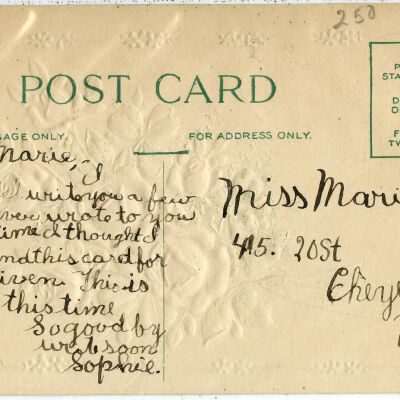 250
POST CARD
SAGE ONLY.
FOR ADDRESS ONLY.
P
STA
D
D
F
TW
Marie, I
write you a few
ever wrote to you
time I thought I
nd this card for
given. This is
this time
So good by
write soon
Sophie.
Miss Mari
415. 20 St
Chey